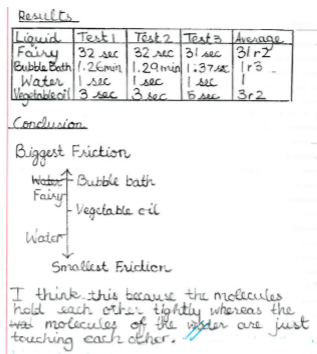 Results
Liquid Test 1 Test 2 Test 3 Average
Fairy 32 sec 32 sec 31 sec 31r2
Bubble Bath 1.26min 1.29min 1.37sec 1r3
Water 1 sec 1 sec 1 sec 1
Vegetable oil 3 sec 3 sec 5 sec 3r2
Conclusion
Biggest Friction
Water Bubble bath
Fairy
Vegetable oil
Water
Smallest Friction
I think this because the molecules
hold each other tightly whereas the
wat molecules of the water are just
touching each other.